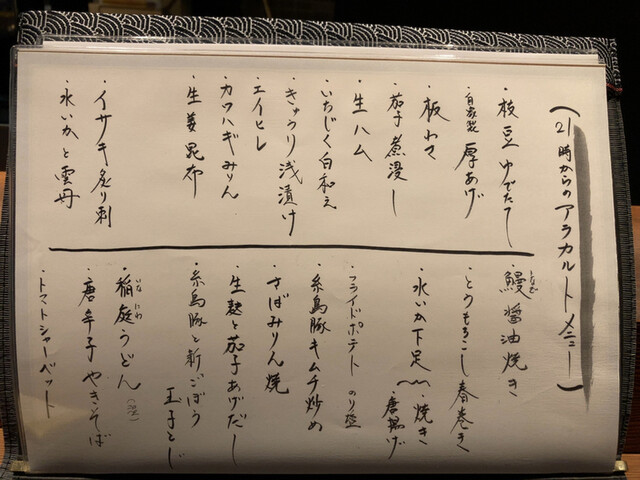 (21時からのアラカルトメニュー)
・枝豆ゆでたて
・自家製 厚あげ
・板わさ
・茄子煮浸し
・生ハム
・いちじく白和え
・きゅうり浅漬け
・エイヒレ
・カワハギみりん
・生姜昆布
・イサキ炙り刺
・水いかと雲丹
・鰻醤油焼き
・とうもろこし春巻き
・水いか下足〜・焼き
・唐揚げ
・フライドポテト のり塩
・糸島豚キムチ炒め
・さばみりん焼
・生麩と茄子あげだし
・糸島豚と新ごぼう
玉子とじ
・稲庭うどん
いなにわ
・唐辛子やきそば
・トマトシャーベット